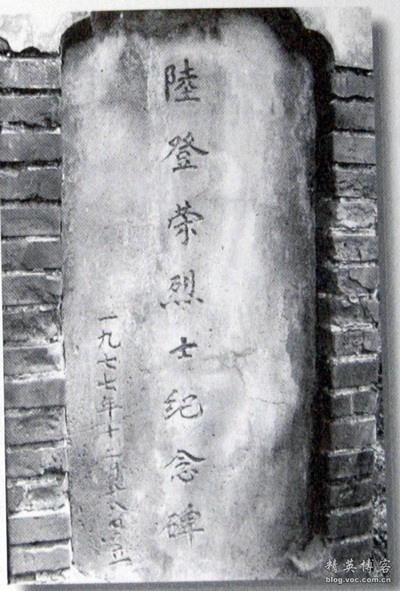 陸登荣烈士纪念碑
一九七七年十二月廿八日立
精英博客
blog.voc.com.cn